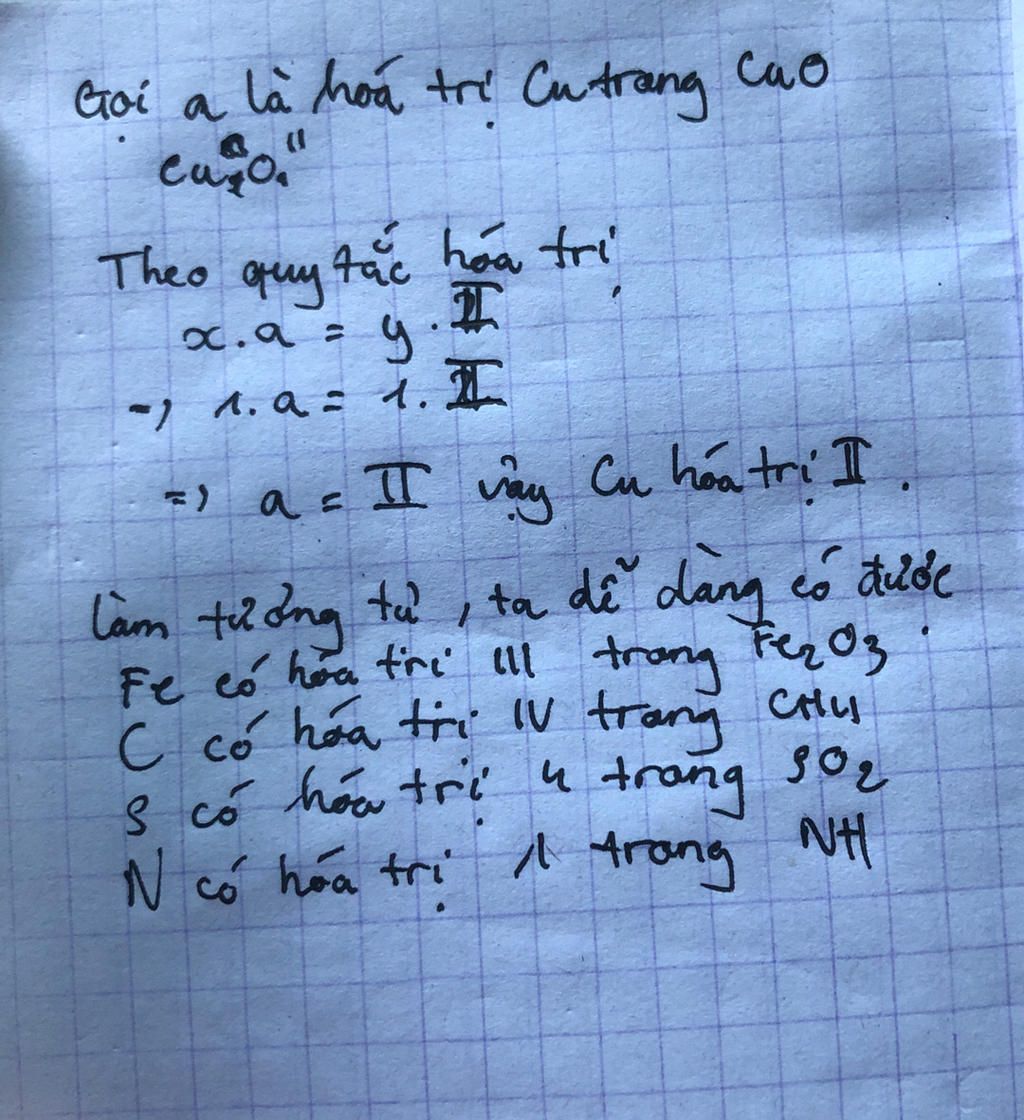 Gọi a là hoá trị Cu trong CuO
Cu₁ᵃO₁ᴵᴵ
Theo quy tắc hóa trị
x.a = y.II
-, 1.a = 1.II
=, a = II vậy Cu hóa trị II.
làm tương tự, ta dễ dàng có được
Fe có hóa trị III trong Fe₂O₃
C có hóa trị IV trong CH₄
S có hóa trị 4 trong SO₂
N có hóa trị 1 trong NH